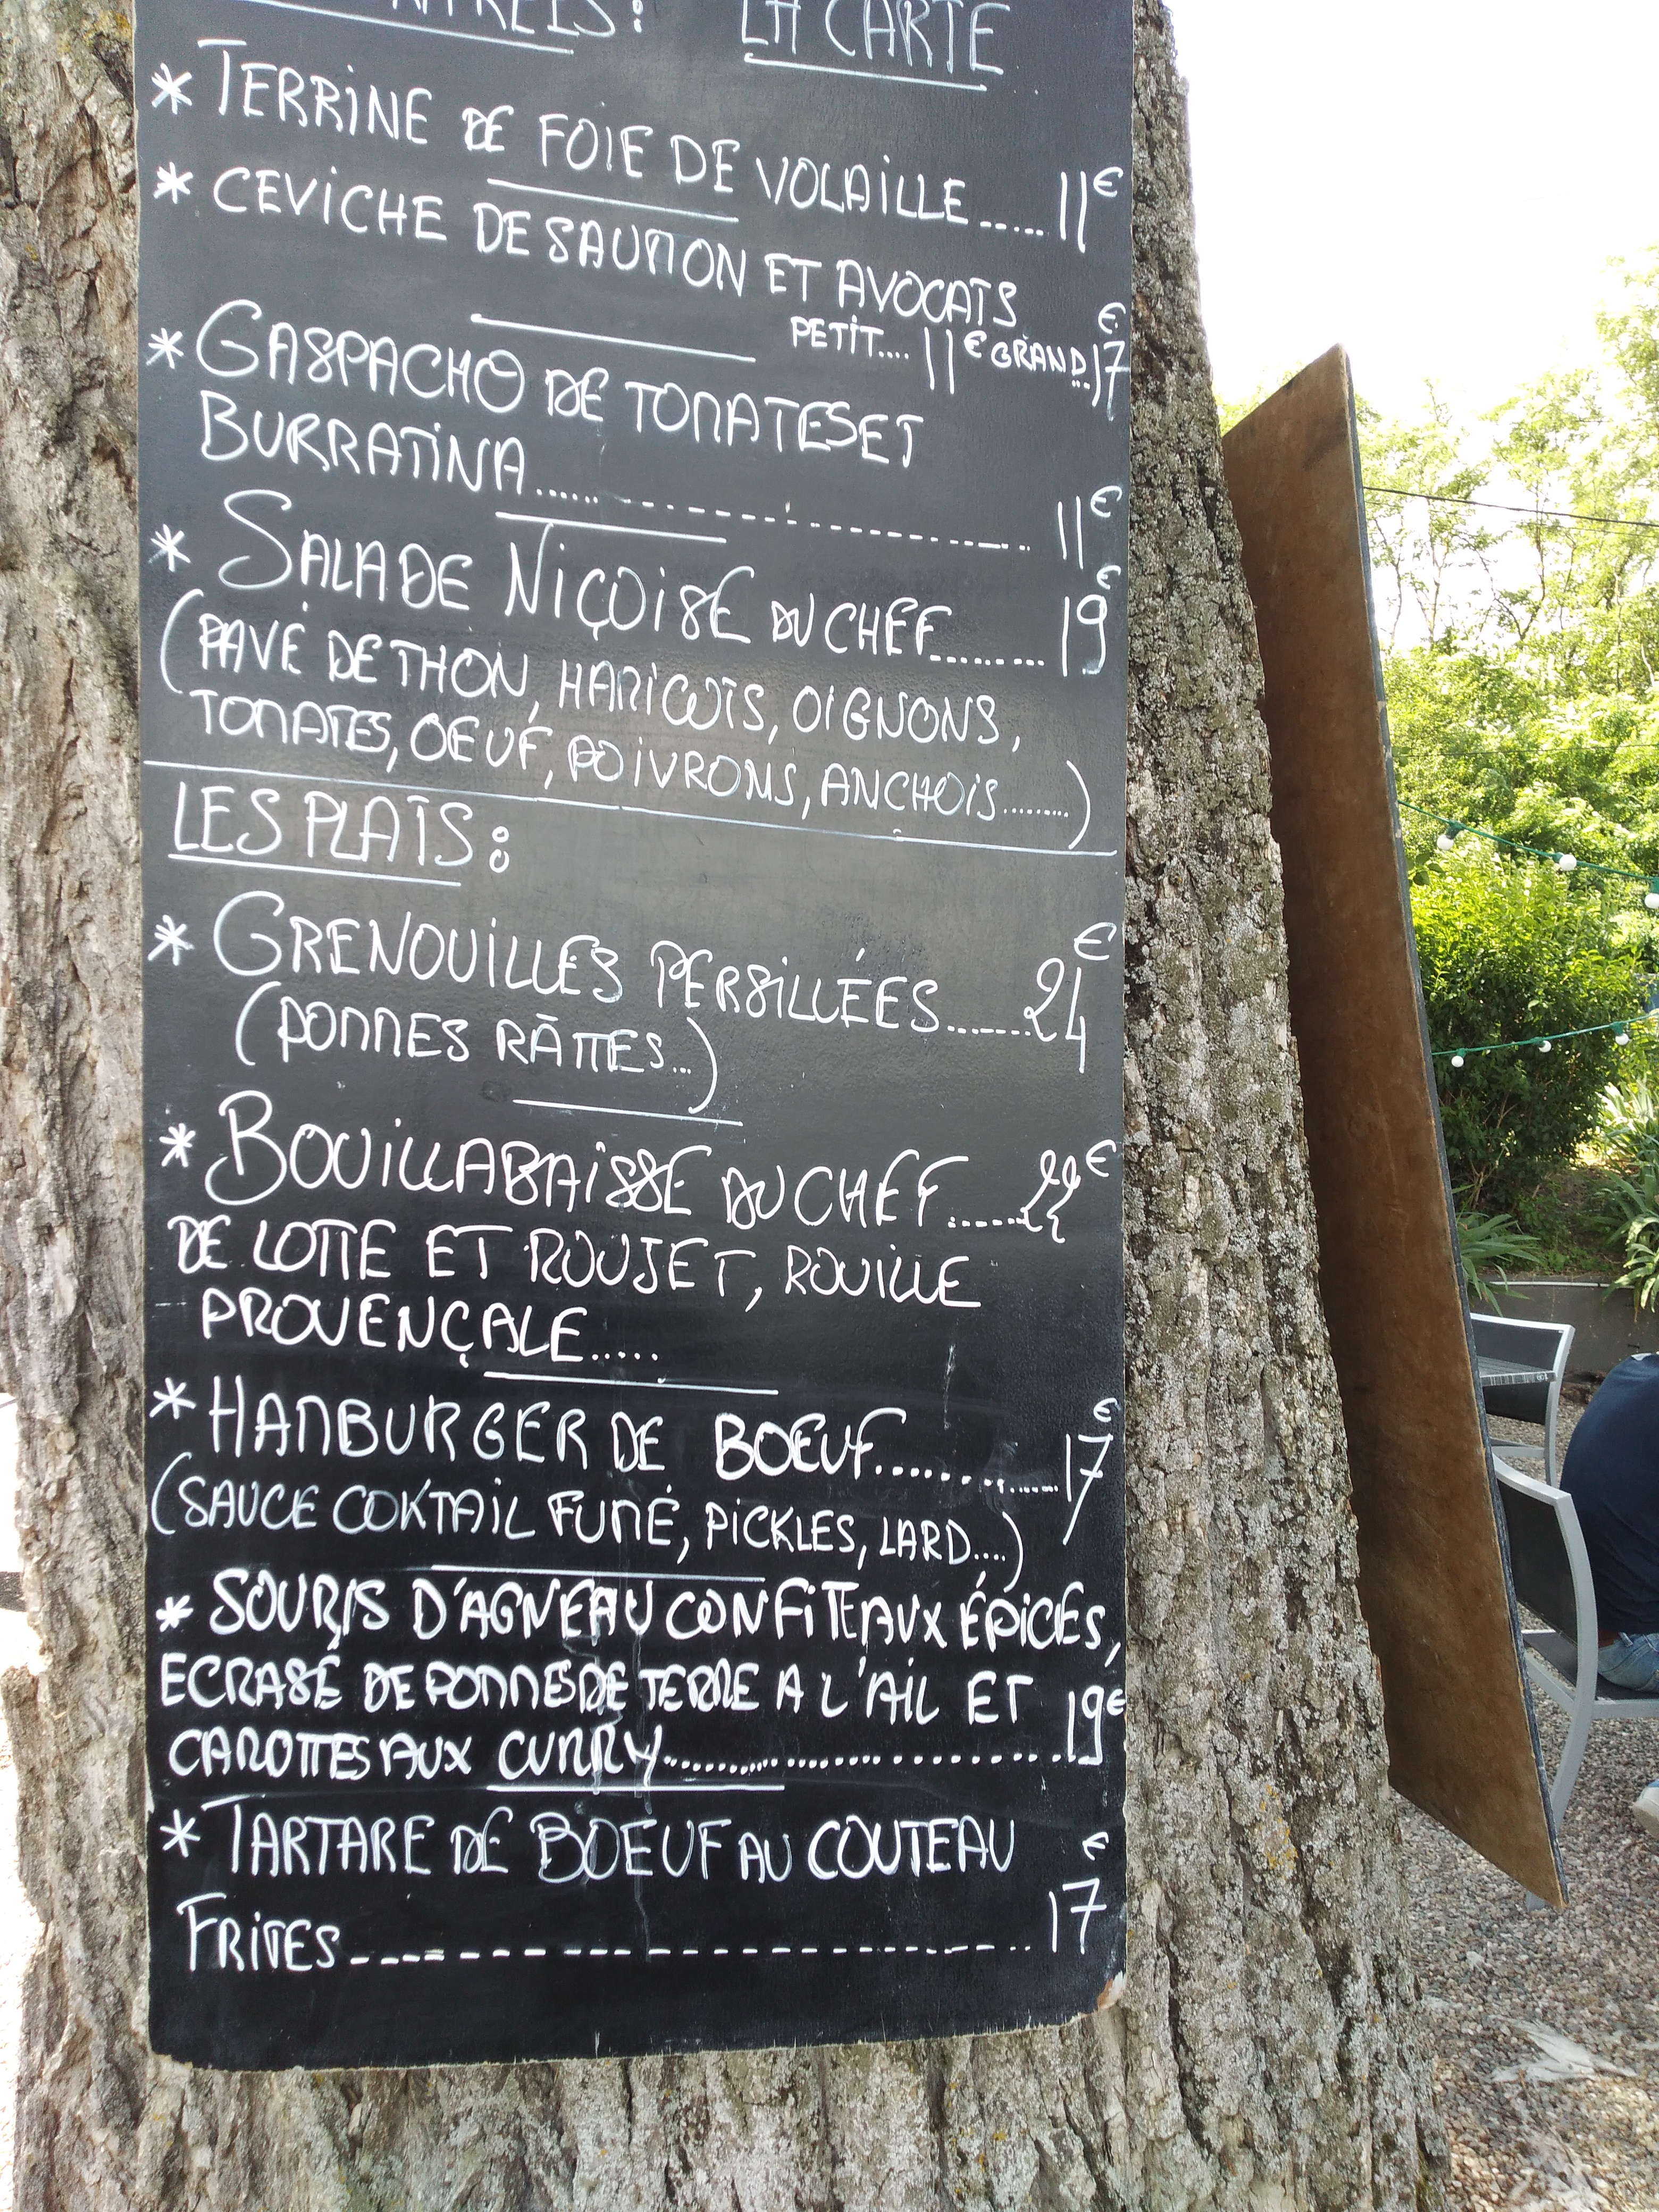 LA CARTE
* TERRINE DE FOIE DE VOLAILLE..... 11€
* CEVICHE DE SAUMON ET AVOCATS
PETIT.... 11€ GRAND..17€
* GASPACHO DE TOMATES ET
BURRATINA.................... 11€
* SALADE NIÇOISE DU CHEF........ 19€
(PAVÉ DE THON, HARICOTS, OIGNONS,
TOMATES, OEUF, POIVRONS, ANCHOIS.........)
LES PLATS:
* GRENOUILLES PERSILLÉES.......24€
(POMMES RÂTTES...)
* BOUILLABAISSE DU CHEF......22€
DE LOTTE ET ROUJET, ROUILLE
PROVENÇALE.....
* HAMBURGER DE BOEUF.............17€
(SAUCE COKTAIL FUMÉ, PICKLES, LARD....)
* SOURIS D'AGNEAU CONFITE AUX ÉPICES,
ECRASÉ DE POMMES DE TERRE A L'AIL ET
CAROTTES AUX CURRY.........................19€
* TARTARE DE BOEUF AU COUTEAU
FRITES-------------------- 17€